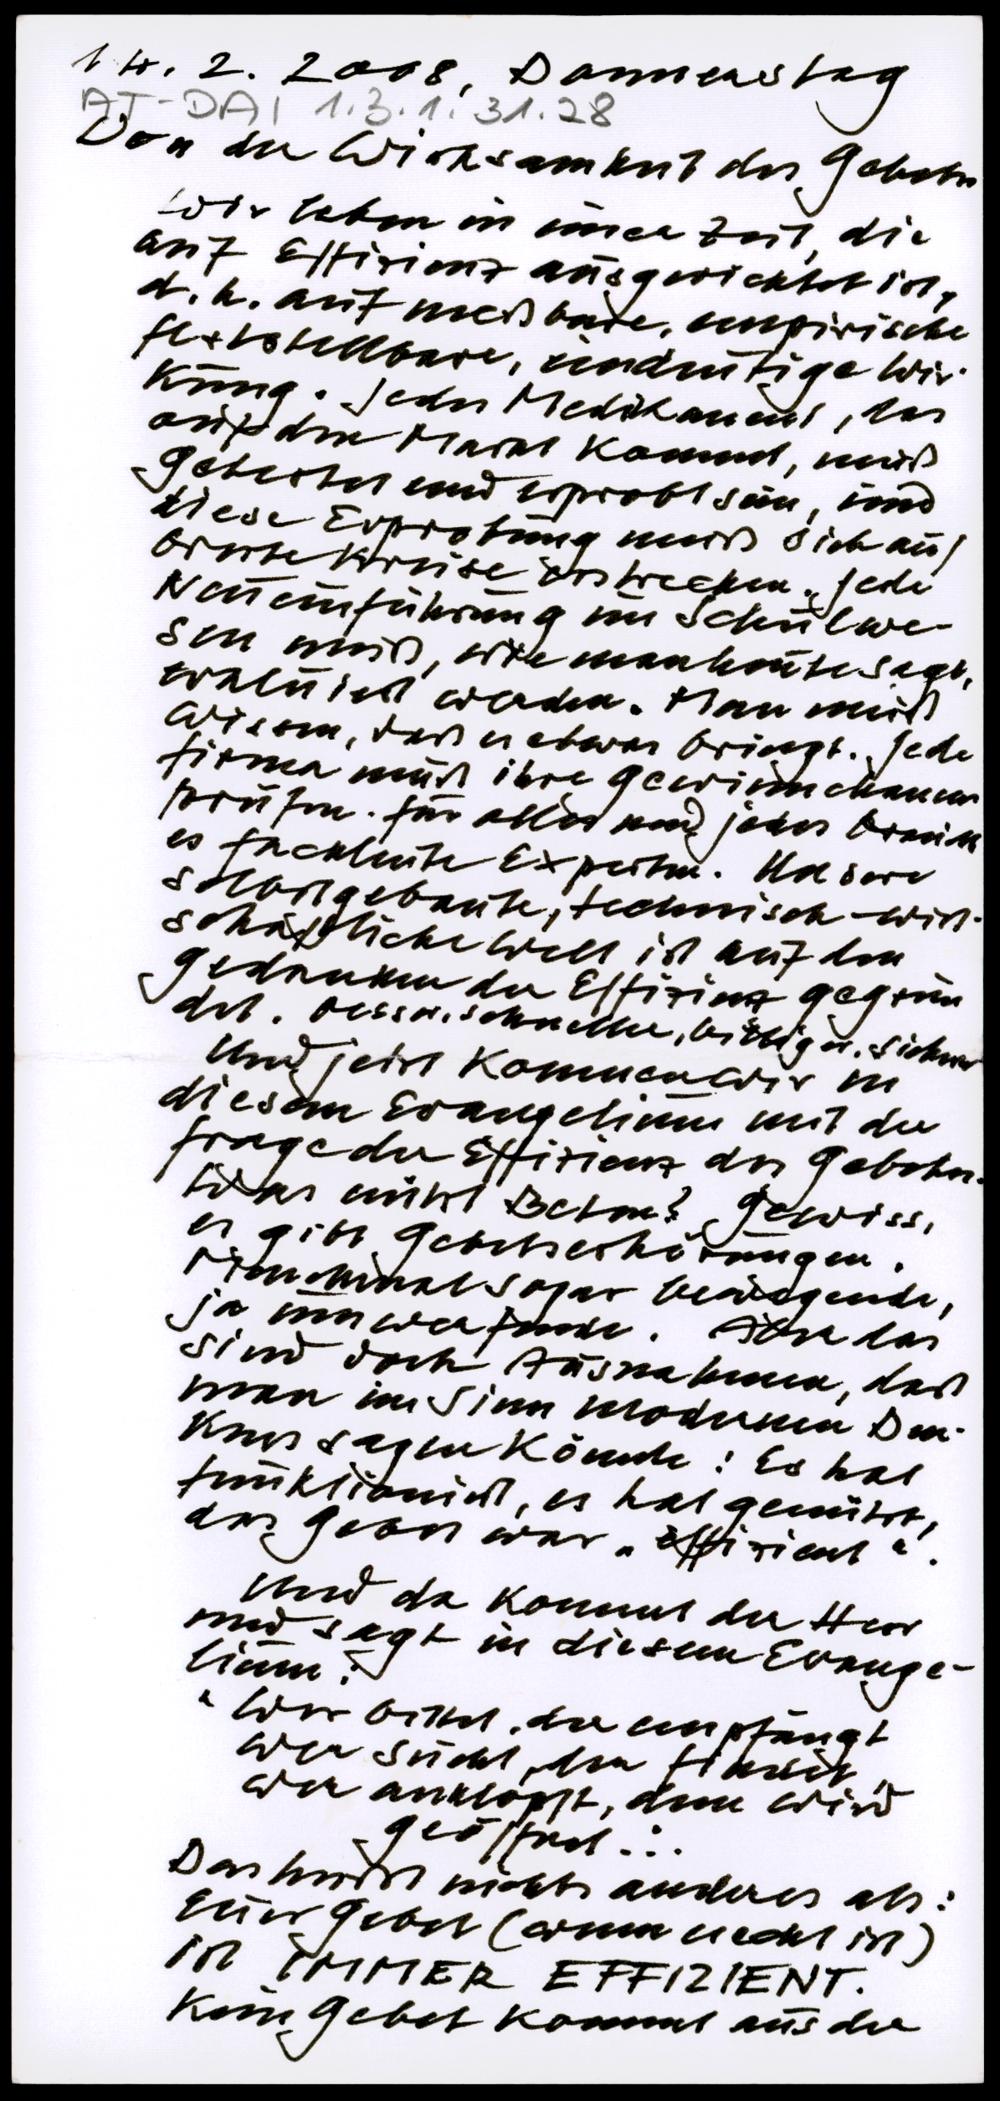 14. 2. 2008, Donnerstag
AT-DAI 1.3.1.31.28
Von der Wirksamkeit des Gebetes
Wir leben in einer Zeit, die
auf Effizienz ausgerichtet ist,
d.h. auf meßbare, empirische
feststellbare, eindeutige Wir-
kung. Jedes Medikament, das
auf den Markt kommt, muß
getestet und erprobt sein, und
diese Erprobung muß sich auf
breite Kreise erstrecken. Jede
Neueinführung im Schulwe-
sen muß, wie man heute sagt,
evaluiert werden. Man muß
wissen, daß es etwas bringt. Jede
Firma muß ihre Gewinnchancen
prüfen. Für alles und jedes braucht
es Fachleute Experten. Unsere
selbstgebaute, technisch-wirt-
schaftliche Welt ist auf den
Gedanken der Effizienz gegrün
det. besser, schneller, billiger, sicherer
Und jetzt kommen wir in
diesem Evangelium mit der
Frage der Effizienz des Gebetes.
Was nützt Beten? Gewiss,
es gibt Gebetserhörungen.
Manchmal sogar bewegende,
ja umwerfende. Aber das
sind doch Ausnahmen, daß
man im Sinn modernen Den-
kens sagen könnte: Es hat
funktioniert, es hat genützt,
das Gebet war „effizient".
Und da kommt der Herr
und sagt in diesem Evange-
lium:
"Wer bittet, der empfängt
wer sucht, der findet,
wer anklopft, dem wird
geöffnet...
Das heißt nichts anderes als:
Euer Gebet (wenn es echt ist)
ist IMMER EFFIZIENT.
Kein Gebet kommt aus der